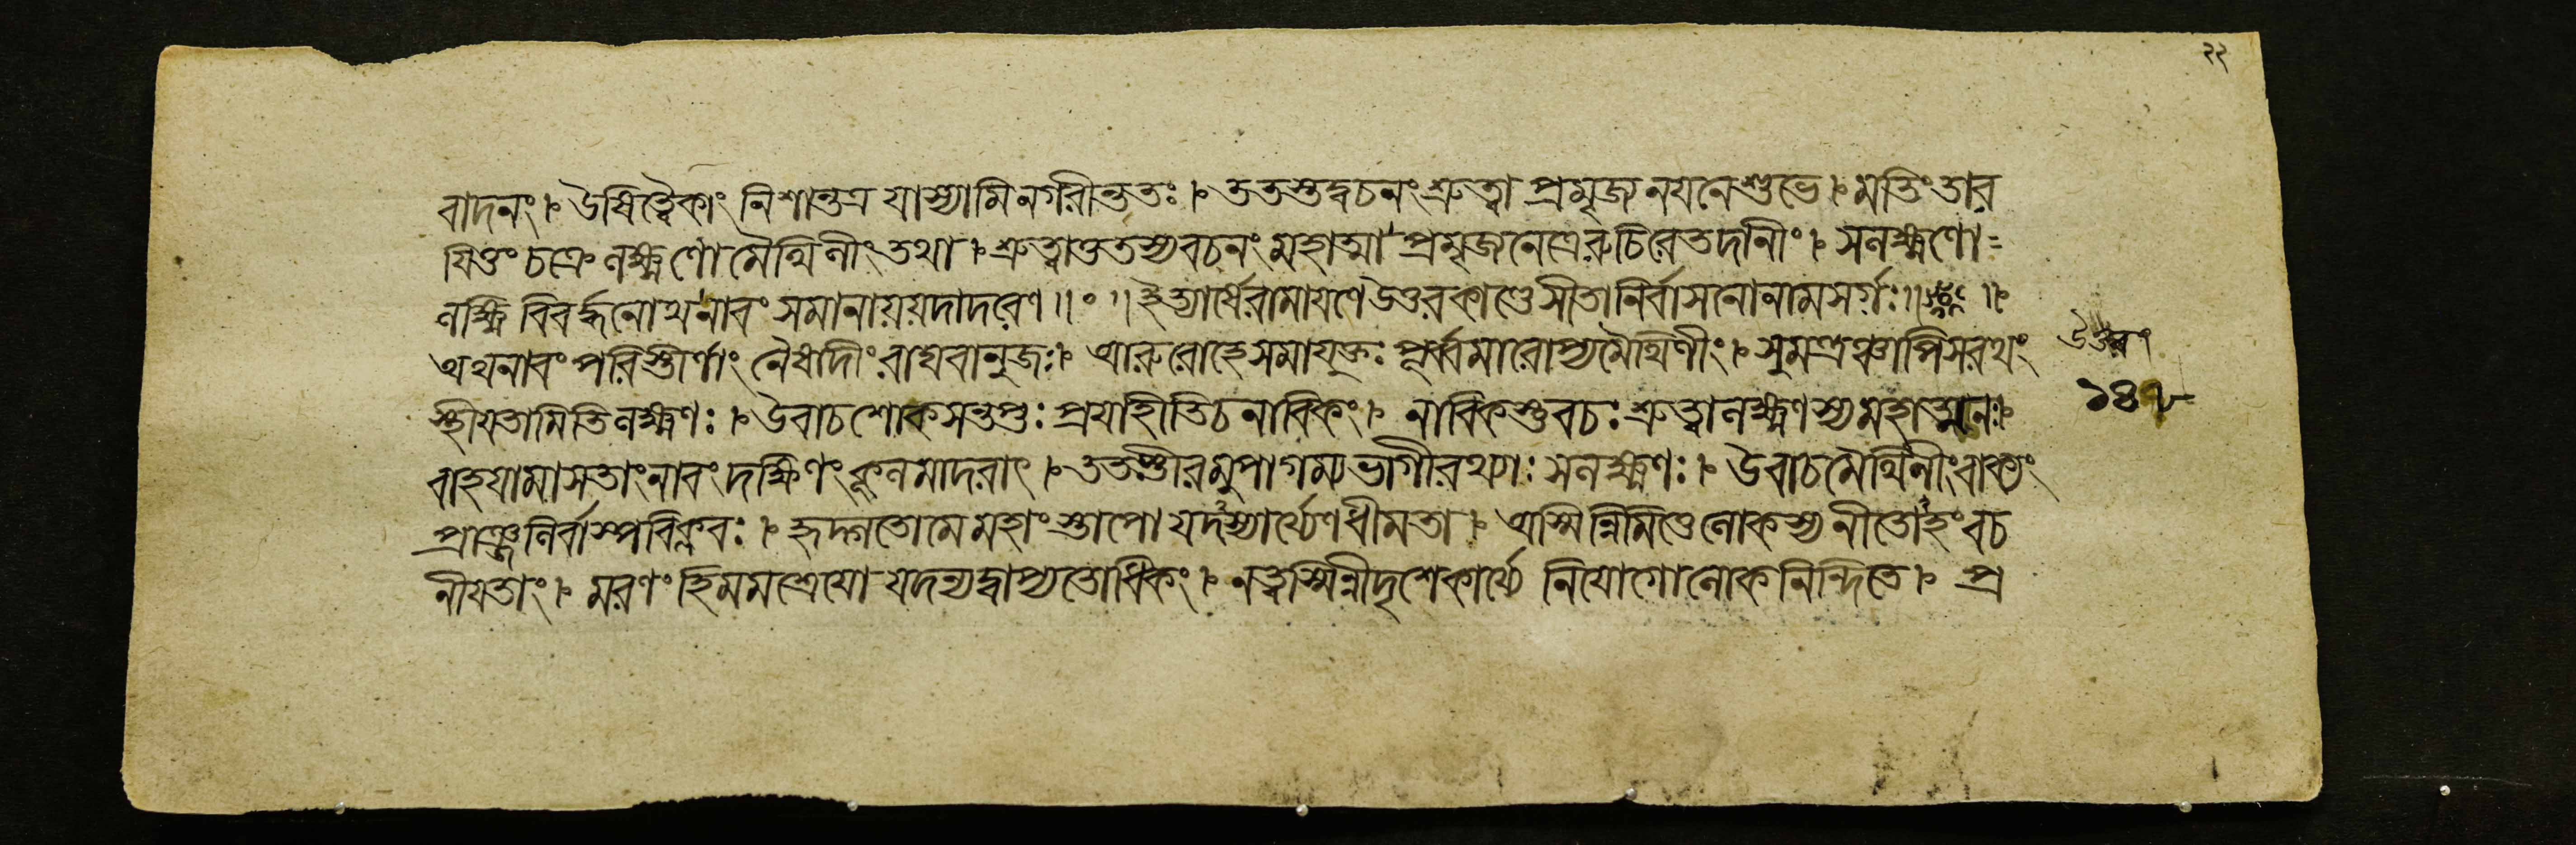 २२
বাদনং। উষিত্বৈকাং নিশান্তত্র যাস্যামি নগরীন্ততঃ। ততস্তদ্বচনং শ্রুত্বা প্রমৃজ্য নযনে শুভে। মতিং তার
যিতুং চক্রে লক্ষ্মণো মৈথিলীং তথা। শ্রুত্বা তু তস্য বচনং মহাত্মা প্রমৃজ্য নেত্রে রুচিরে তদানীং। স লক্ষ্মণো
লক্ষ্মি বিবর্দ্ধনোথ নাবং সমানাযযদাদরেণ॥ ॰ ॥ ইত্যার্ষে রামাযণে উত্তরকাণ্ডে সীতানির্বাসনো নাম সর্গঃ॥ ॥
অথ নাবং পরিস্তীর্ণাং নৈষাদীং রাঘবানুজঃ। আরুরোহ সমাযুক্তঃ পূর্ব্বমারোপ্য মৈথিলীং। সুমন্ত্রঞ্চাপি সরথং
উত্তর
স্থীযতামিতি লক্ষ্মণঃ। উবাচ শোকসন্তপ্তঃ প্রযাহীতি চ নাবিকং। নাবিকস্তু বচঃ শ্রুত্বা লক্ষ্মণস্য মহাত্মনঃ।
১৪৮
বাহযামাস তাং নাবং দক্ষিণং কূলমাদরাৎ। ততস্তীরমুপাগম্য ভাগীরথ্যাঃ স লক্ষ্মণঃ। উবাচ মৈথিলীং বাক্যং
প্রাঞ্জলির্বাস্পবিক্লবঃ। হৃদ্গতো মে মহাংস্তাপো যদস্ম্যার্য্যেণ ধীমতা। অস্মিন্নিমিত্তে লোকস্য নীতোহং বচ
নীযতাং। মরণং হি মম শ্রেযো যদন্যদ্বাপ্যতোধিকং। ন ত্বস্মিন্নীদৃশে কার্য্যে নিযোগো লোকনিন্দিতে। প্র